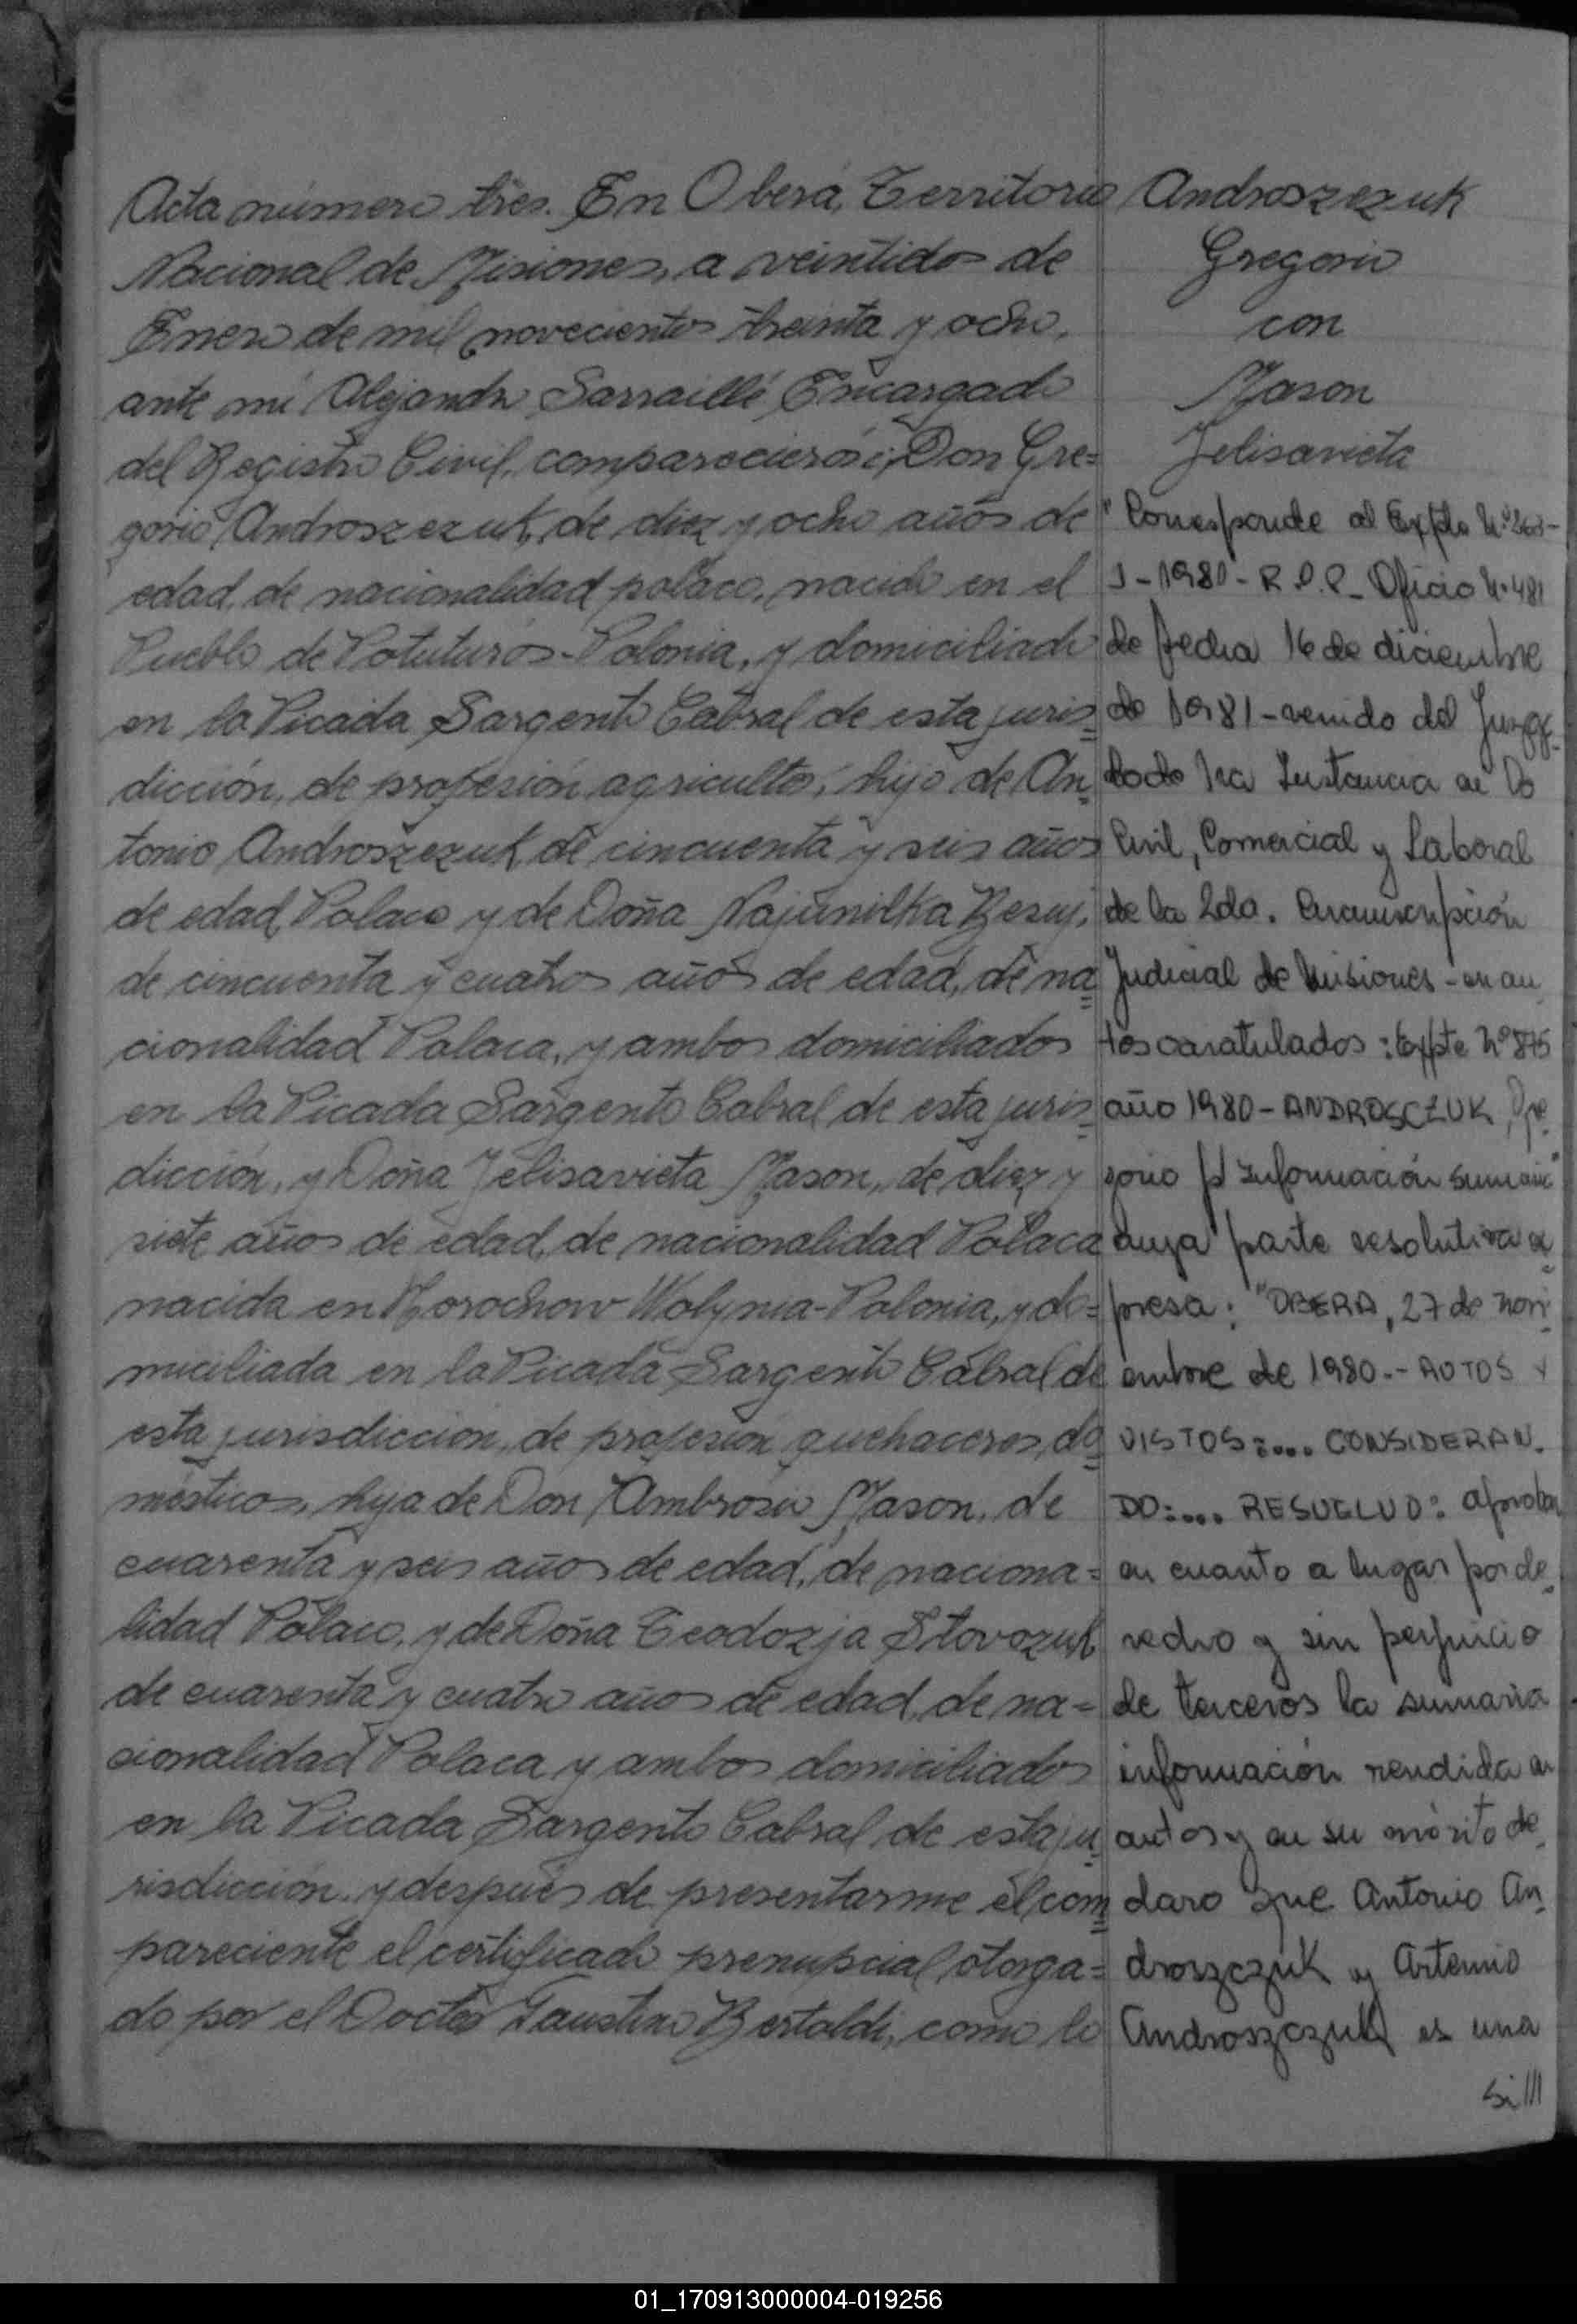 Acta número tres. En Oberá, Territorio
Nacional de Misiones, a veintidos de
Enero de mil novecientos treinta y ocho,
ante mí Alejandro Sarraillé Encargado
del Registro Civil, comparecieron: Don Gre=
gorio Androszezuk, de diez y ocho años de
edad, de nacionalidad polaco, nacido en el
Pueblo de Potuturós-Polonia, y domiciliado
en la Picada Sargento Cabral de esta juris=
dicción, de profesión agricultor, hijo de An=
tonio Androszezuk de cincuenta y seis años
de edad, Polaco y de Doña
de cincuenta y cuatro años de edad, de na=
cionalidad Polaca, y ambos domiciliados
en la Picada Sargento Cabral de esta juris=
dicción, y Doña Jelisavieta Mason, de diez y
siete años de edad, de nacionalidad Polaca
nacida en Horochow Wolynia-Polonia, y do=
miciliada en la Picada Sargento Cabral de
esta jurisdicción, de profesión quehaceres do=
mésticos, hija de Don Ambrosio Mason, de
cuarenta y seis años de edad, de naciona=
lidad Polaco, y de Doña Teodozja
de cuarenta y cuatro años de edad, de na=
cionalidad Polaca y ambos domiciliados
en la Picada Sargento Cabral de esta ju=
risdicción y después de presentarme el com=
pareciente el certificado prenupcial otorga=
do por el Doctor Faustino Bertoldi, como lo
Androszezuk
Gregorio
con
Mason
Jelisavieta
"Corresponde al Expte Nº 263-
J-1980- R.P.P_ Oficio Nº 481
de fecha 16 de diciembre
de 1981 - venido del Juzg
dodo 1ra Instancia en lo
Civil, Comercial y Laboral
de la 2da. Circunscripción
Judicial de Misiones - en au
tos caratulados: Expte Nº 875
año 1980 - ANDROSCZUK, Gre
gorio s/ Información sumaria"
cuya parte resolutiva ex
presa: "OBERA, 27 de novi
embre de 1980.- AUTOS Y
VISTOS:... CONSIDERAN.
DO:... RESUELVO: aprobar
en cuanto a lugar por de
recho y sin perjuicio
de terceros la sumaria
información rendida en
autos y en su mérito de
claro que Antonio An
droszczuk y Artemio
Androszczuk es una
si///
01_170913000004-019256